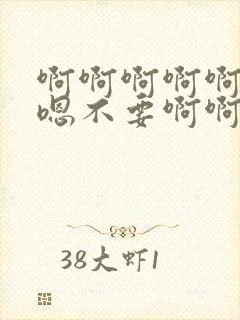 啊啊啊啊啊
嗯不要啊啊
38大虾1